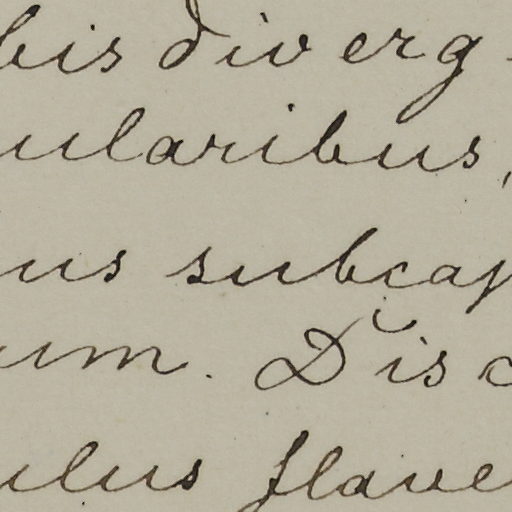 bis diverg
ularibus,
us subcap
um. Disc
ulus flave